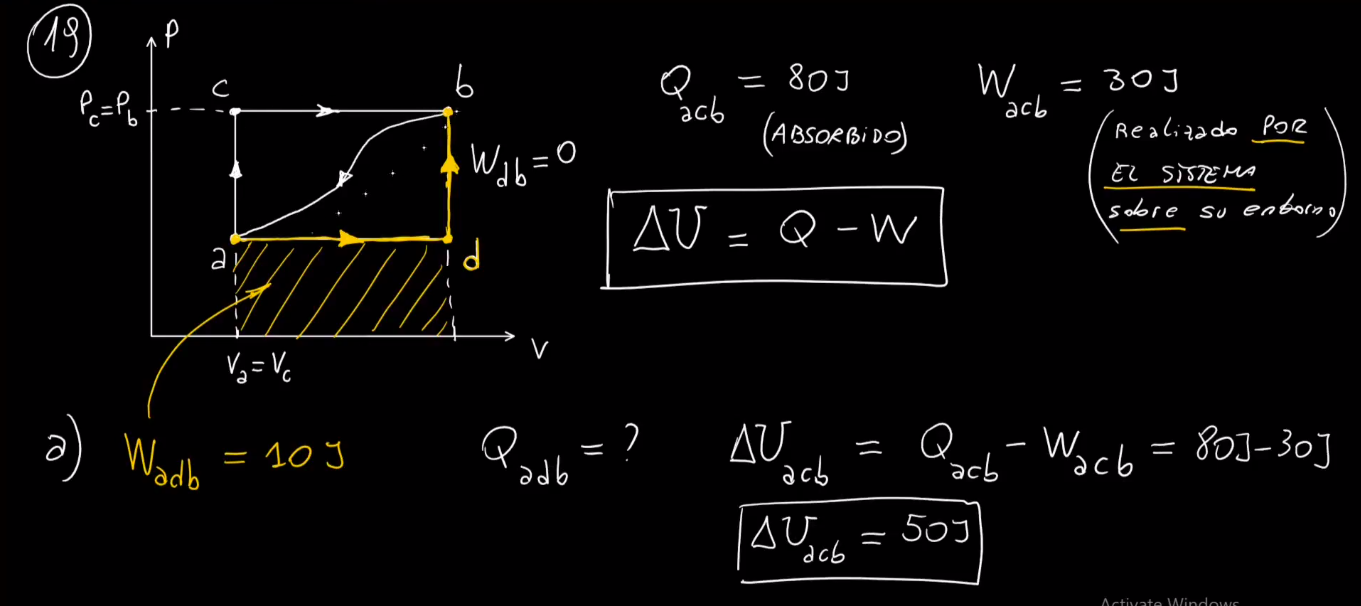 19
P
c
b
Pc=Pb
Qacb = 80J
(ABSORBIDO)
Wacb = 30J
(Realizado POR
EL SISTEMA
sobre su entorno)
Wdb=0
ΔU = Q - W
a
d
V
Va=Vc
a) Wadb = 10J
Qadb = ?
ΔUacb = Qacb - Wacb = 80J-30J
ΔUacb = 50J
Activate Windows